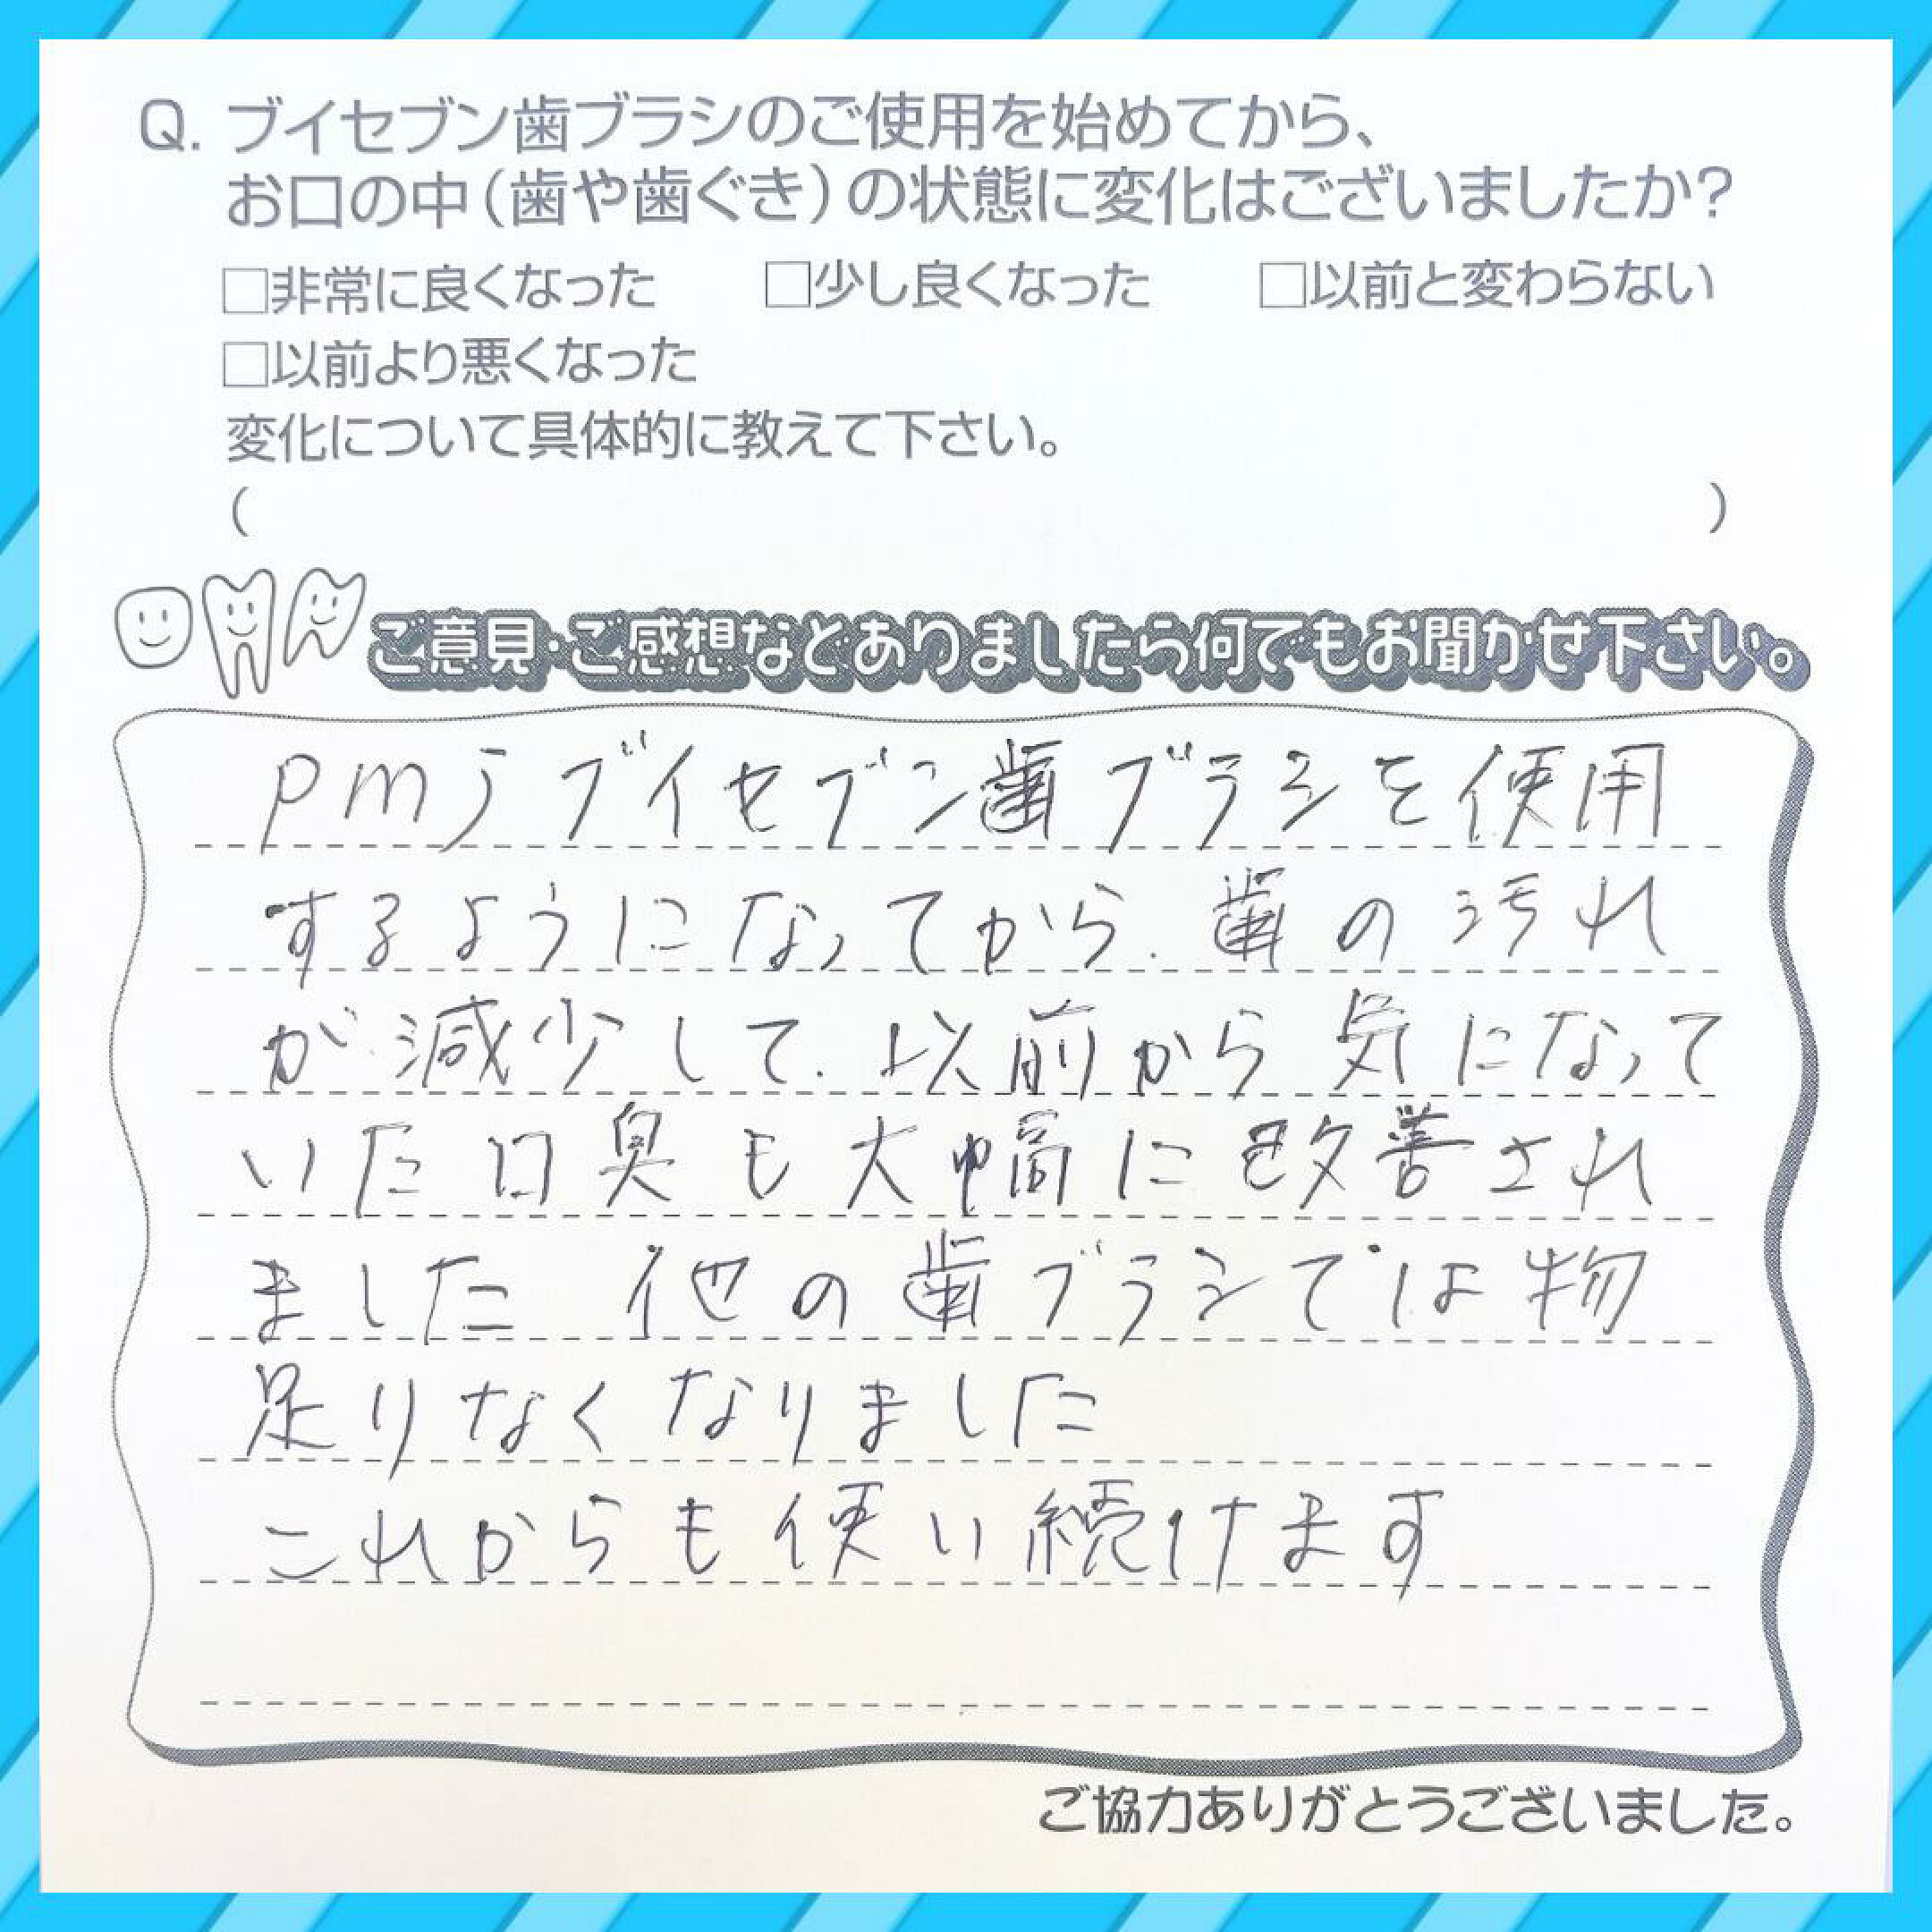 Q. ブイセブン歯ブラシのご使用を始めてから、
お口の中（歯や歯ぐき）の状態に変化はございましたか？
□非常に良くなった □少し良くなった □以前と変わらない
□以前より悪くなった
変化について具体的に教えて下さい。
（ ）
ご意見・ご感想などありましたら何でもお聞かせ下さい。
pmjブイセブン歯ブラシを使用
するようになってから、歯の汚れ
が減少して、以前から気になって
いた口臭も大幅に改善され
ました 他の歯ブラシでは物
足りなくなりました
これからも使い続けます
ご協力ありがとうございました。